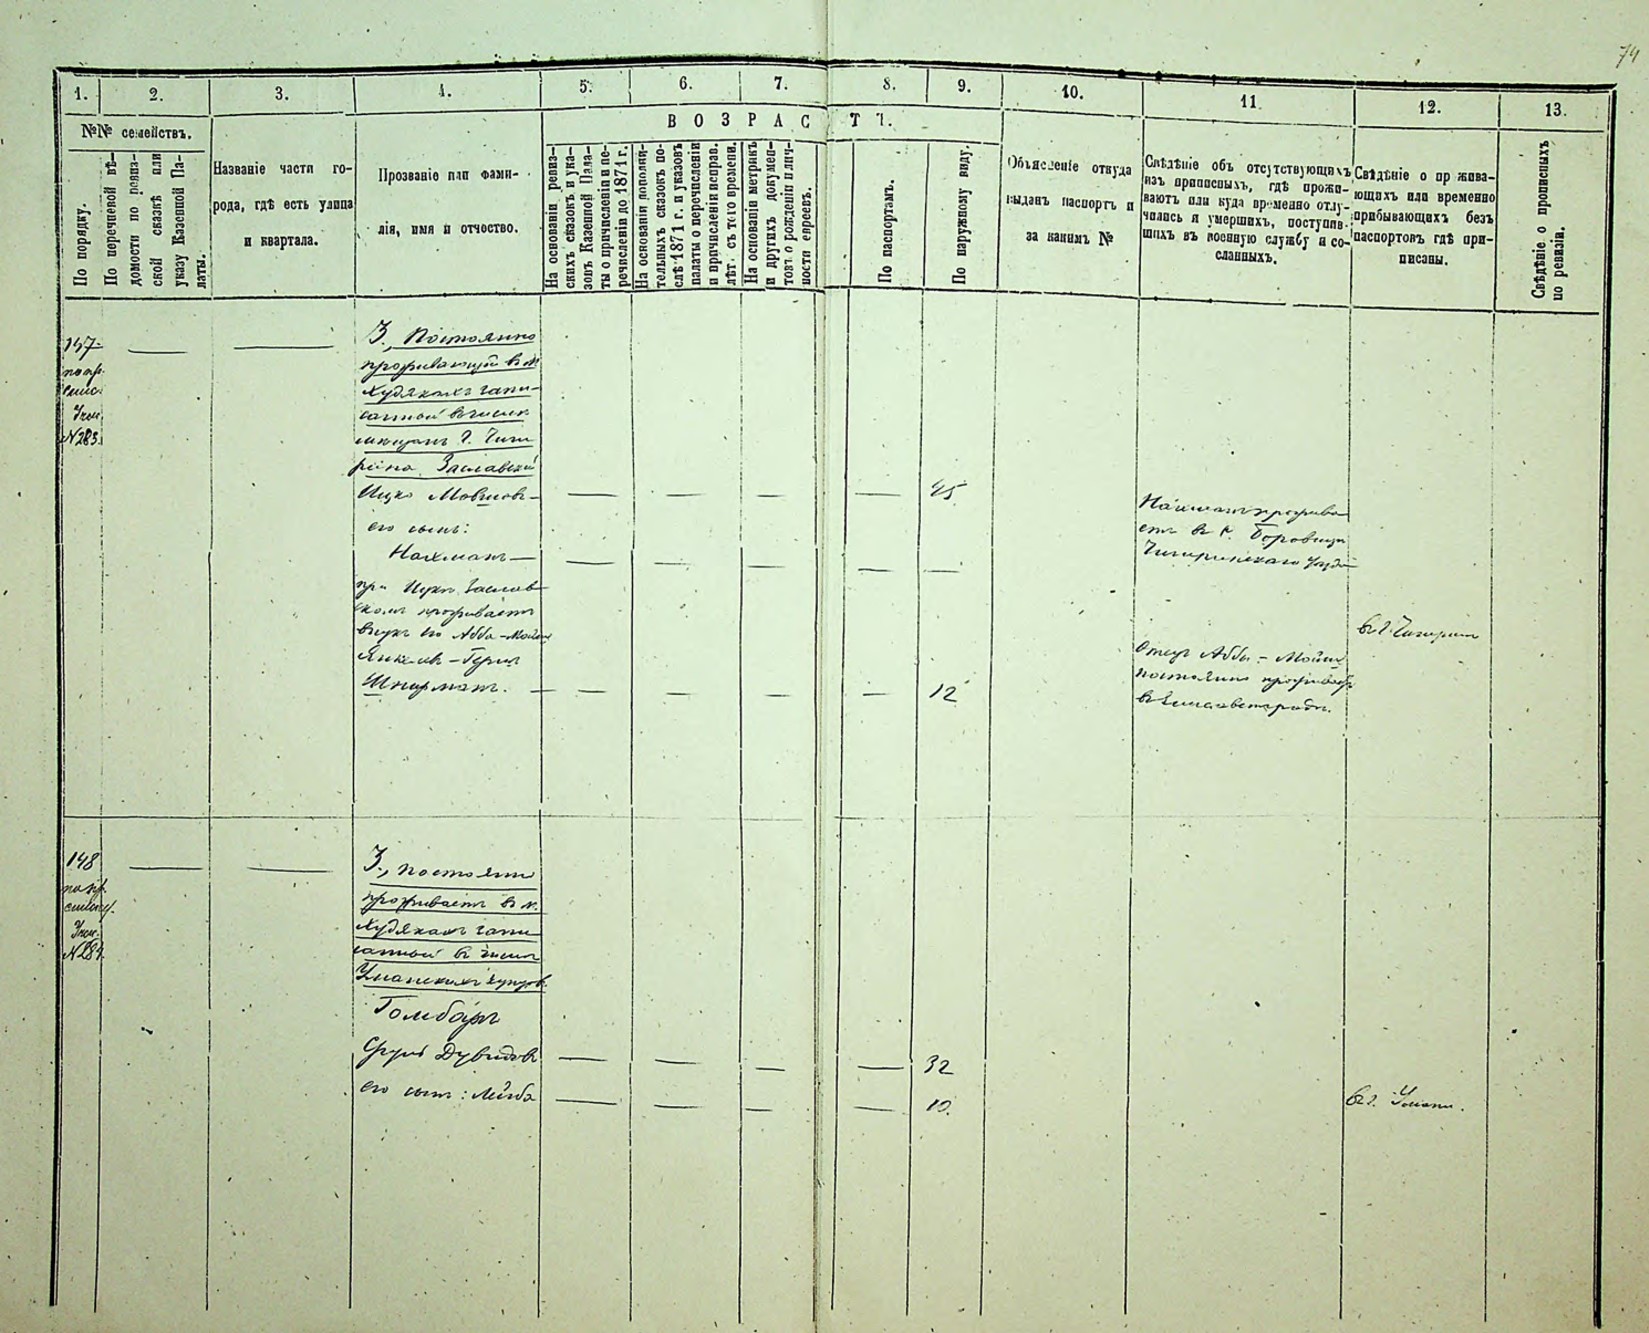 74
1. 2. 3. 4. 5. 6. 7. 8. 9. 10. 11. 12. 13.
№№ семействъ.
ВОЗРАСТЪ.
По порядку.
По перечневой вѣ-
домости по ревиз-
ской сказкѣ или
указу Казенной Па-
латы.
Названіе части го-
рода, гдѣ есть улица
и квартала.
Прозваніе или фами-
лія, имя и отчество.
На основаніи ревиз-
скихъ сказокъ и ука-
зовъ Казенной Пала-
ты о причисленіи и пе-
речисленіи до 1871 г.
На основаніи дополни-
тельныхъ сказокъ по-
слѣ 1871 г. и указовъ
палаты о перечисленіи
и причисленіи исправ.
лѣт. съ того времени.
На основаніи метрикъ
и другихъ докумен-
товъ о рожденіи и лич-
ности евреевъ.
По паспортамъ.
По наружному виду.
Объясненіе откуда
выданъ паспортъ и
за какимъ №
Свѣдѣніе объ отсутствующихъ
изъ приписныхъ, гдѣ прожи-
ваютъ или куда временно отлу-
чились и умершихъ, поступив-
шихъ въ военную службу и со-
сланныхъ.
Свѣдѣніе о прожива-
ющихъ или временно
прибывающихъ безъ
паспортовъ гдѣ при-
писаны.
Свѣдѣніе о прописныхъ
по ревизіи.
147
по пр.
спис.
№ 283.
3., Постоянно
проживающій въ м.
Худякахъ запи-
санный въ числѣ
мѣщанъ г. Чиги
рина Заславскій
Ицко Мовшовъ — 45
его сынъ:
Нахманъ —
при Ицкѣ Заслав
скомъ проживаетъ
внукъ его Абба-Мойше
Янкелевъ-Герша
Шпирманъ. — 12
Нахманъ прожива
етъ въ с. Боровицѣ
Чигиринскаго уѣзда
въ г. Чигиринѣ
Отецъ Аббы-Мойше
постоянно проживаетъ
въ Елисаветградѣ.
148
по пр.
списку.
№ 284.
3., постоянно
проживаетъ въ м.
Худякахъ запи
санный въ числѣ
Уманскихъ купцовъ
Гомбаръ
Сруль Дувидовъ — 32
его сынъ: Лейба — 10.
въ г. Умани.